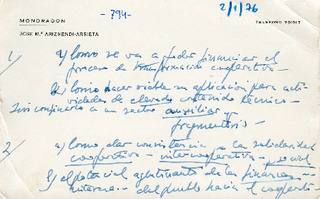 MONDRAGON
-794-
2/1/76
JOSE Mª ARIZMENDI-ARRIETA
TELEFONO
1/ a) Como se va a poder financiar el
proceso de transformación cooperativa.-
b) Como hacer viable su aplicación para acti-
vidades de elevado contenido técnico.-
Sin confinarlo a un sector auxiliar y
fragmentario
2/ a) Como dar consistencia a la solidaridad
cooperativa - intercooperativa y social
b) el potencial aglutinante de las finanzas -
interna - del pueblo hacia el